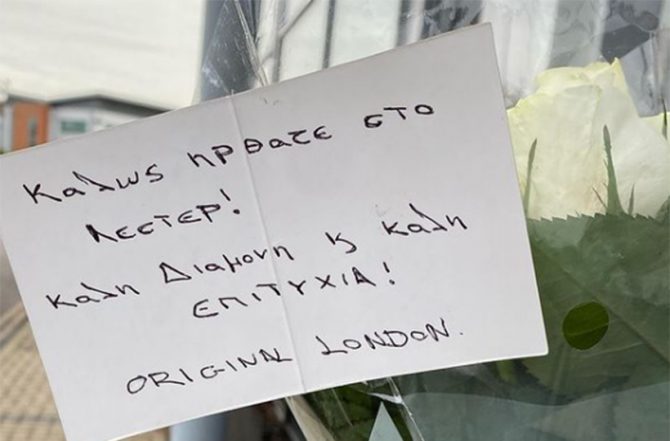 Καλως ηρθατε στο
Λεστερ!
Καλη Διαμονη ϗ Καλη
ΕΠΙΤΥΧΙΑ!
ORIGINAL LONDON.